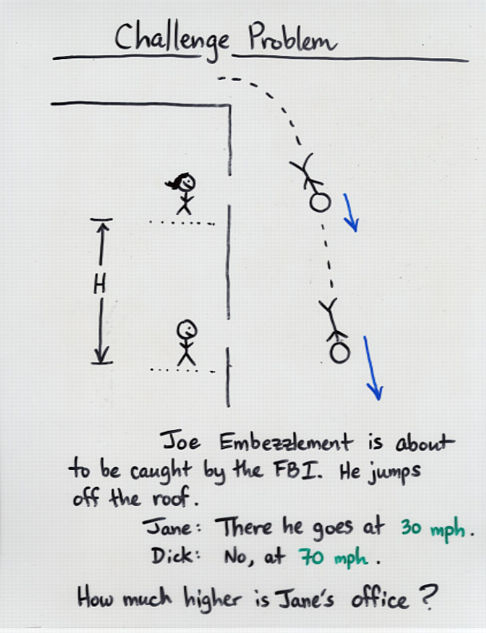 Challenge Problem
H
Joe Embezzlement is about
to be caught by the FBI. He jumps
off the roof.
Jane: There he goes at 30 mph.
Dick: No, at 70 mph.
How much higher is Jane's office?